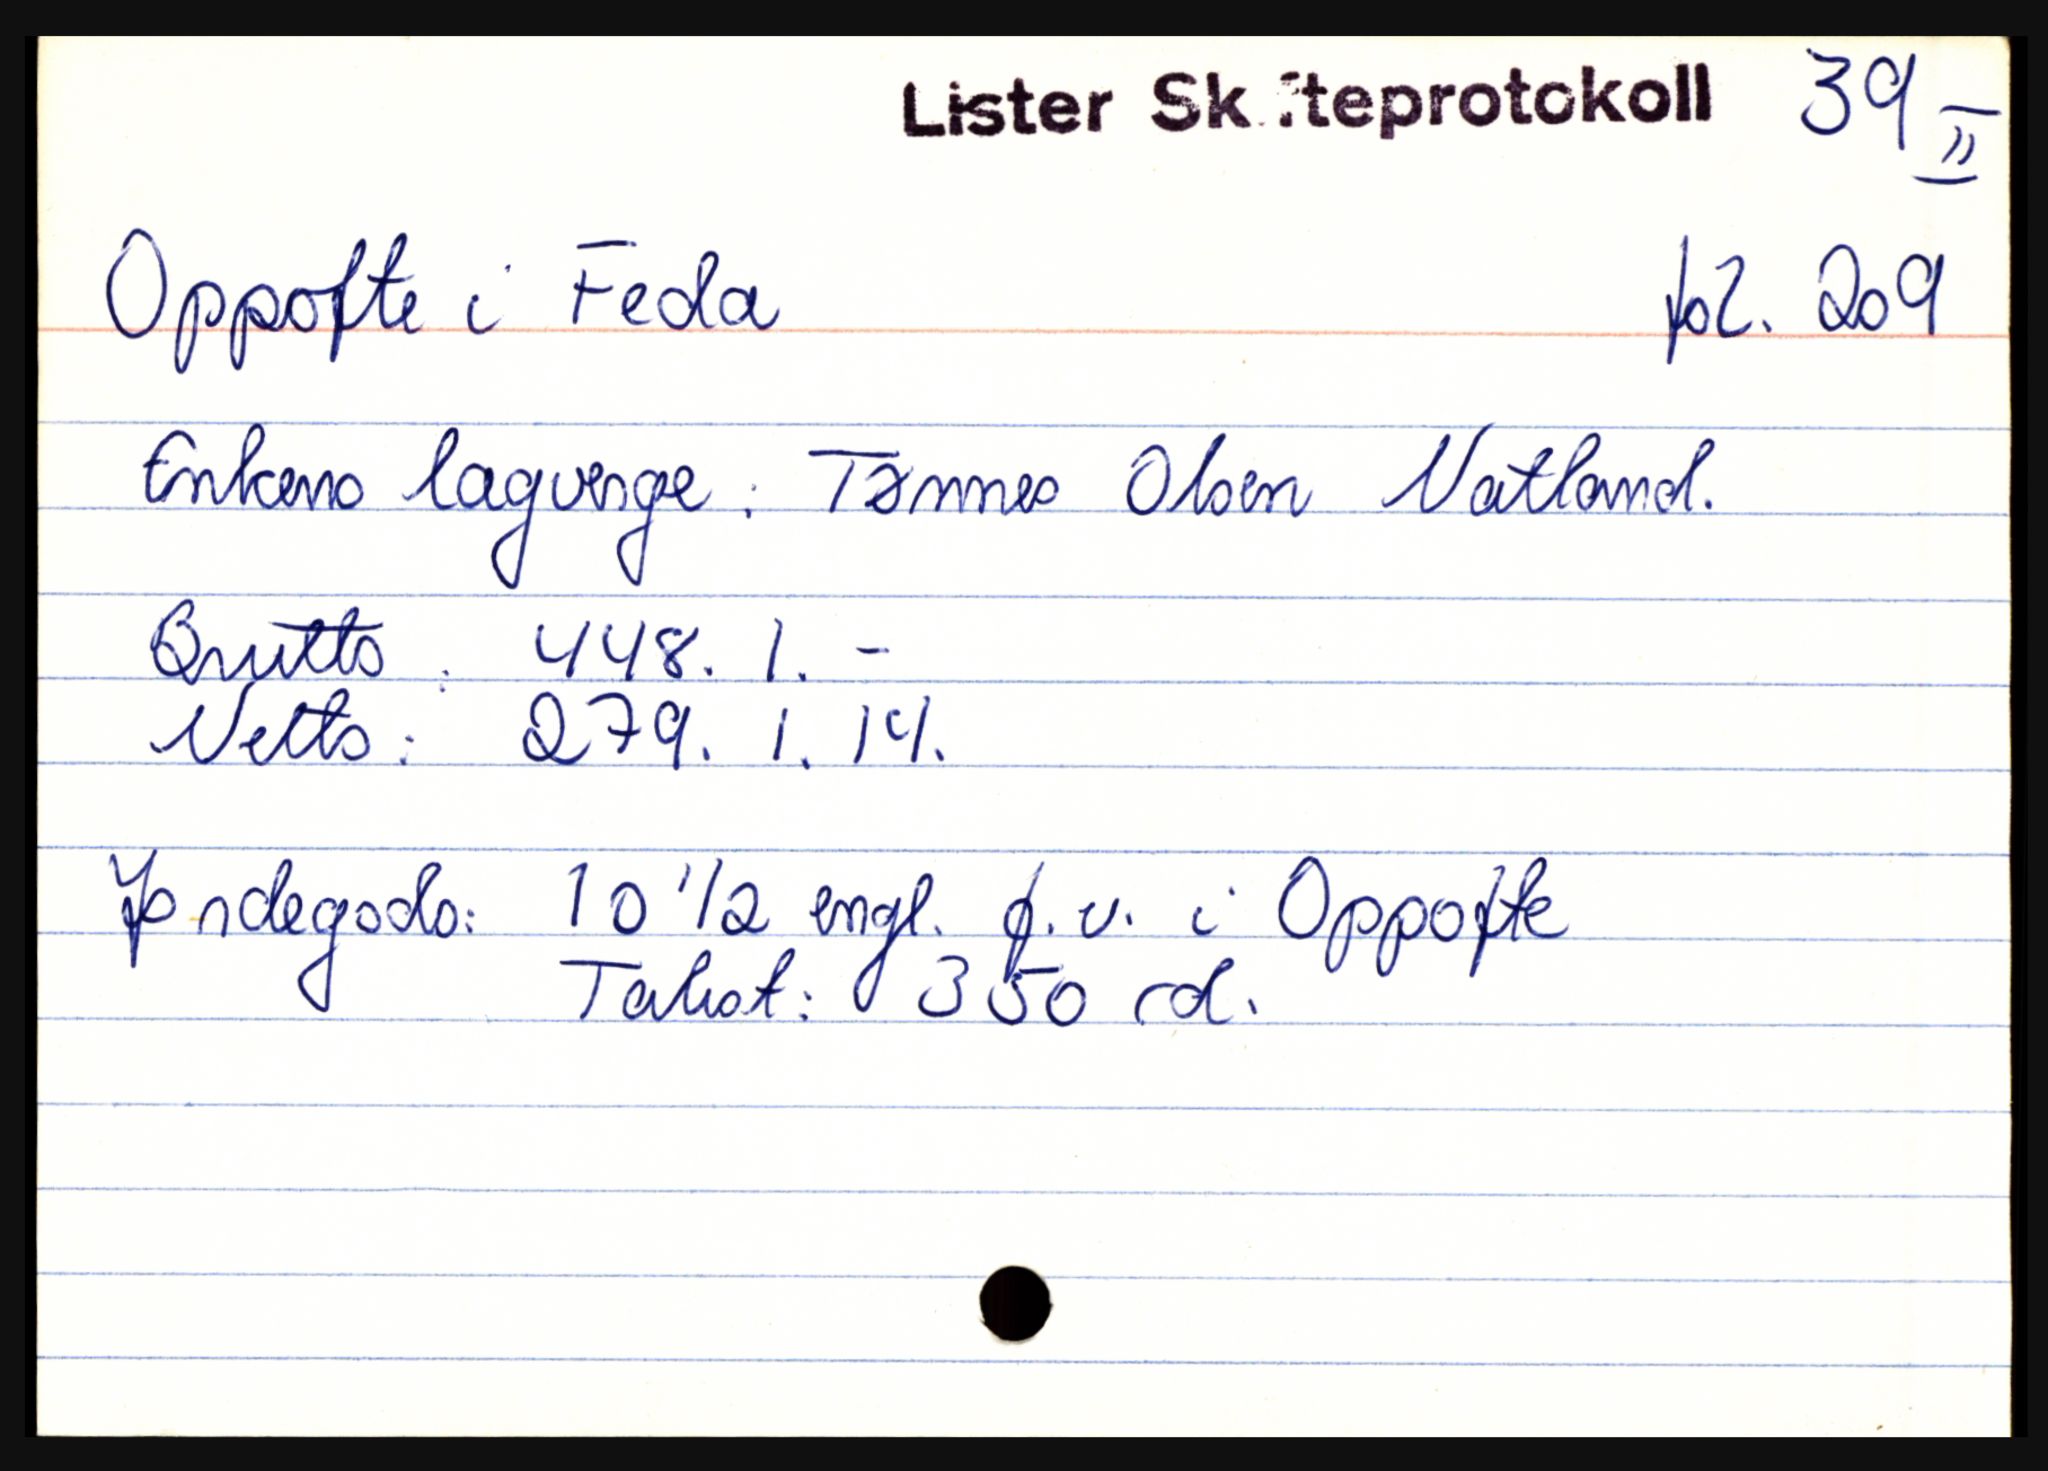 Lister Skifteprotokoll 39 II
Oppofte i Feda fol. 209
Enkens lagverge: Tønnes Olsen Natland.
Brutto: 448. 1. -
Netto: 279. 1. 14.
Jordegods: 10 1/2 engl. f.v. i Oppofte
Takst: 350 rd.